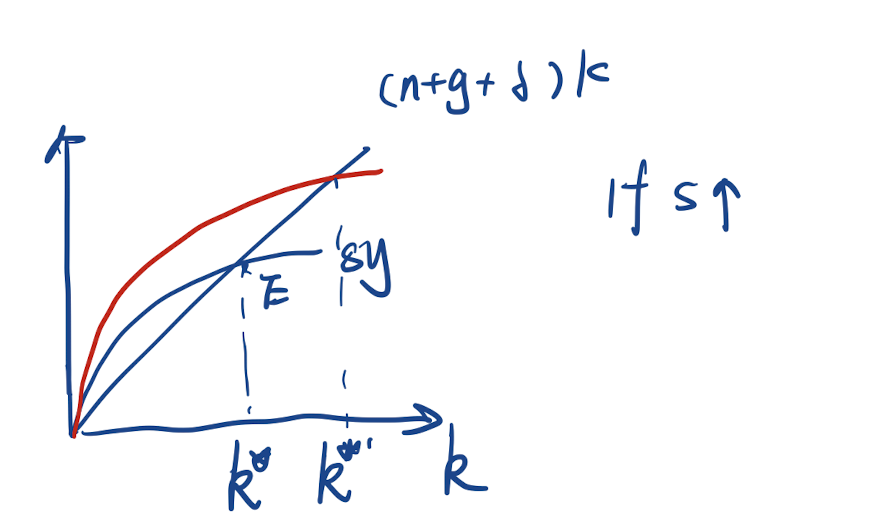 (n+g+δ)k
If s↑
sy
E
k* k*' k